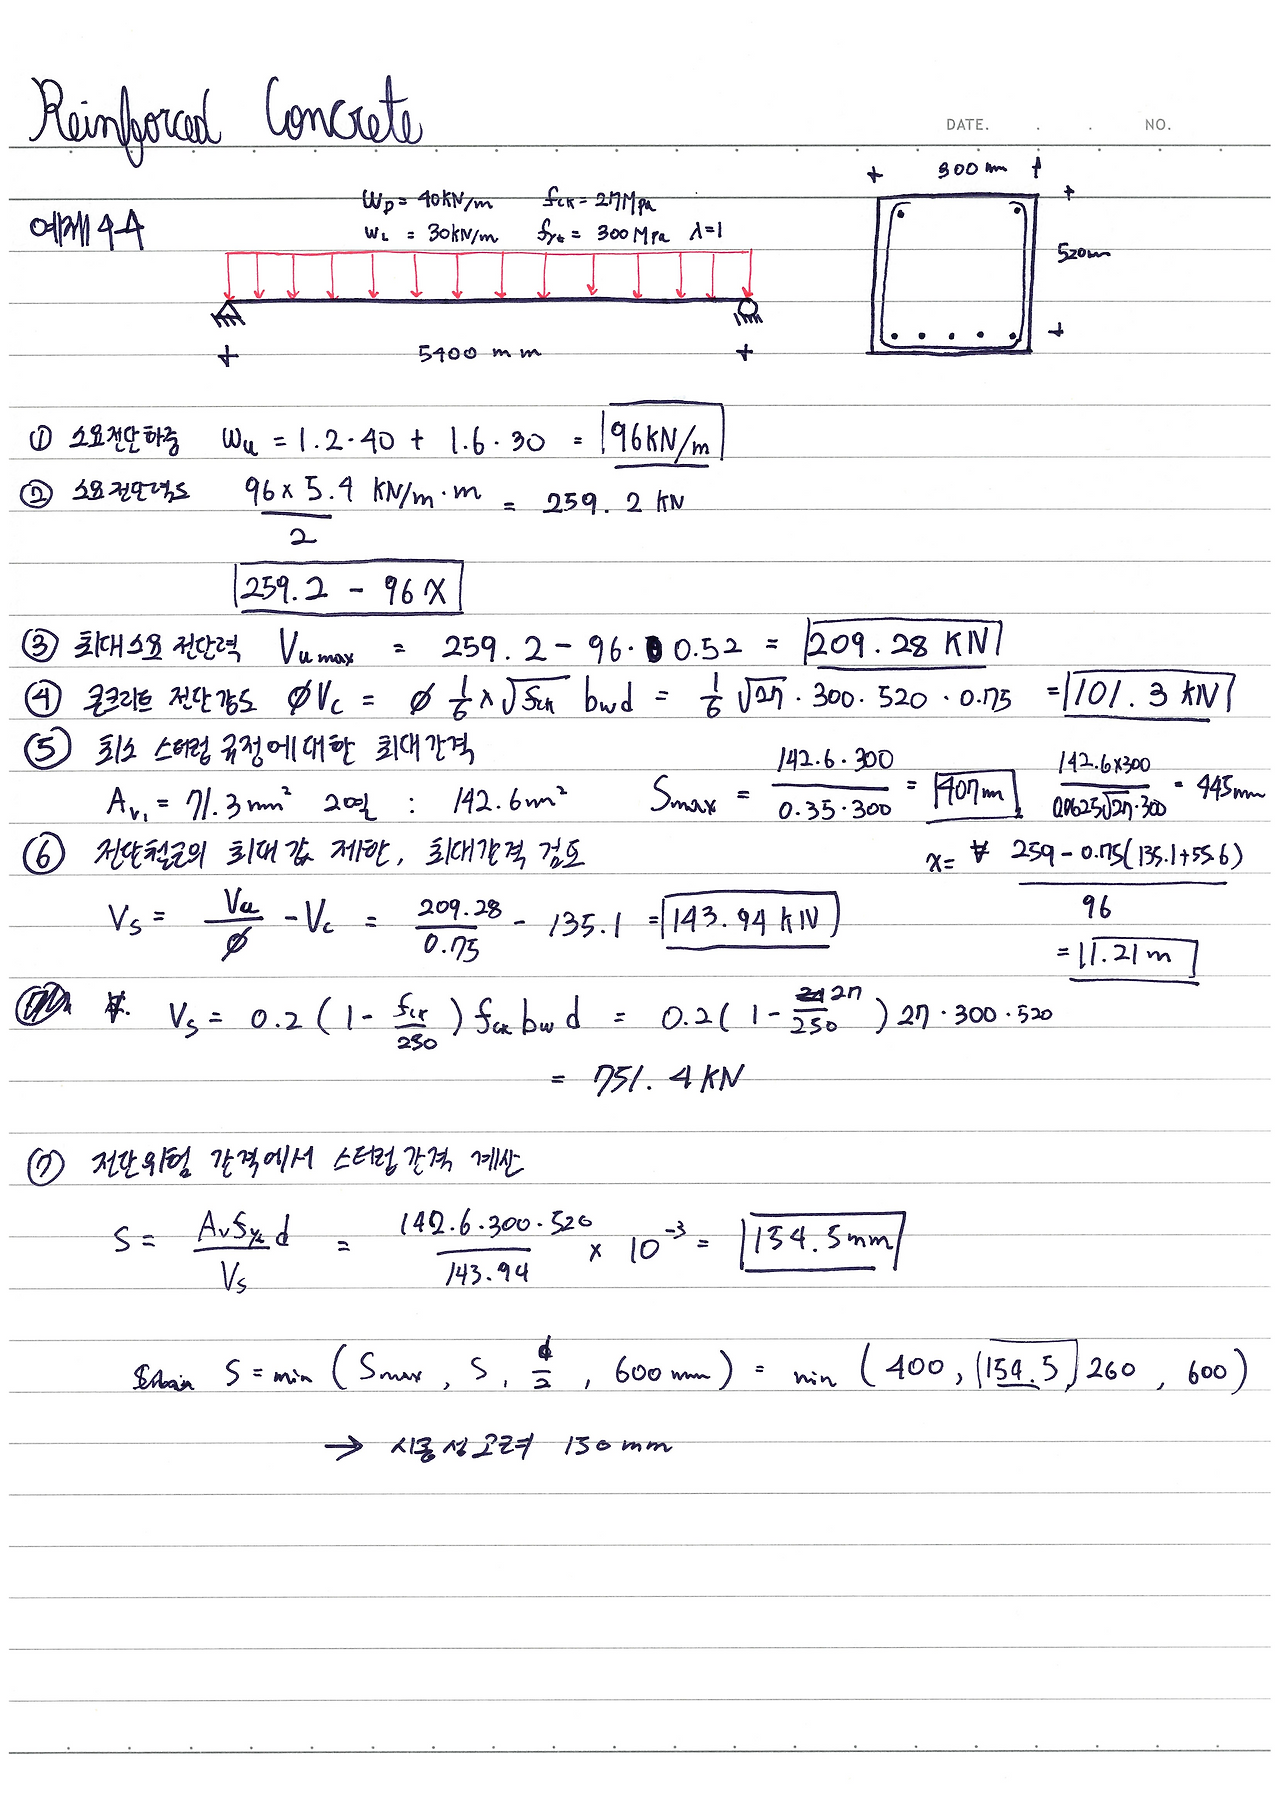 Reinforced Concrete
DATE. . . NO.
예제 4-4
W_D = 40KN/m f_ck = 27Mpa
w_L = 30KN/m f_yt = 300Mpa λ=1
300mm
520m
5400 mm
① 소요전단하중 Wu = 1.2·40 + 1.6·30 = 96KN/m
② 소요전단력도 (96×5.4)/2 KN/m·m = 259.2 KN
259.2 - 96x
③ 최대소요 전단력 Vu max = 259.2 - 96·0.52 = 209.28 KN
④ 콘크리트 전단강도 ØVc = Ø 1/6 × √fck bwd = 1/6 √27 · 300 · 520 · 0.75 = 101.3 KN
⑤ 최소 스터럽 규정에 대한 최대간격
Av₁ = 71.3mm² 2열 : 142.6m² Smax = (142.6·300)/(0.35·300) = 407m (142.6×300)/(0.0625√27·300) = 445mm
⑥ 전단철근의 최대값 제한, 최대간격 검토
Vs = Vu/Ø - Vc = 209.28/0.75 - 135.1 = 143.94 KN
x = (259 - 0.75(135.1+55.6))/96
= 1.21m
Vs = 0.2 (1 - fck/250) fck bw d = 0.2 (1 - 27/250) 27·300·520
= 751.4KN
⑦ 전단위험 간격에서 스터럽간격 계산
S = (Av fyt d)/Vs = (142.6·300·520)/143.94 × 10⁻³ = 154.5mm
S = min (Smax, S, d/2, 600mm) = min (400, 154.5, 260, 600)
→ 시공성고려 150mm